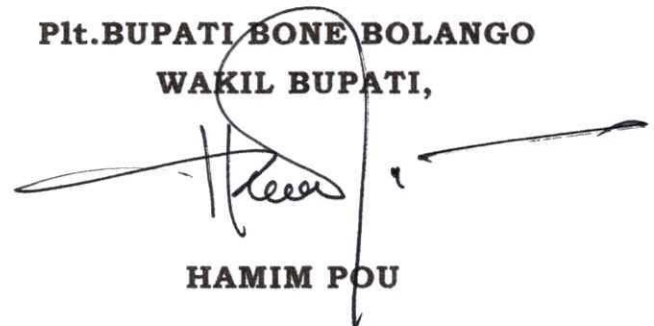 Plt.BUPATI BONE BOLANGO
WAKIL BUPATI,
HAMIM POU